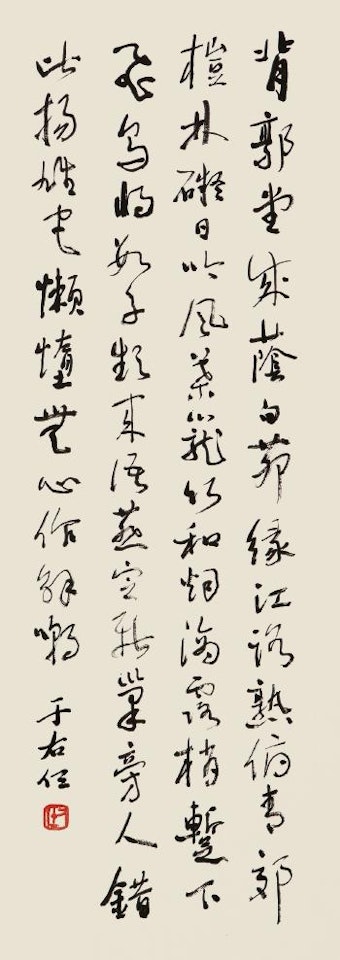 背郭堂成蔭白茆緣江路熟俯青郊
榿林礙日吟風葉籠竹和烟滴露梢暫下
飛烏將數子頻來語燕定新巢旁人錯
比揚雄宅懶惰無心作解嘲
于右任